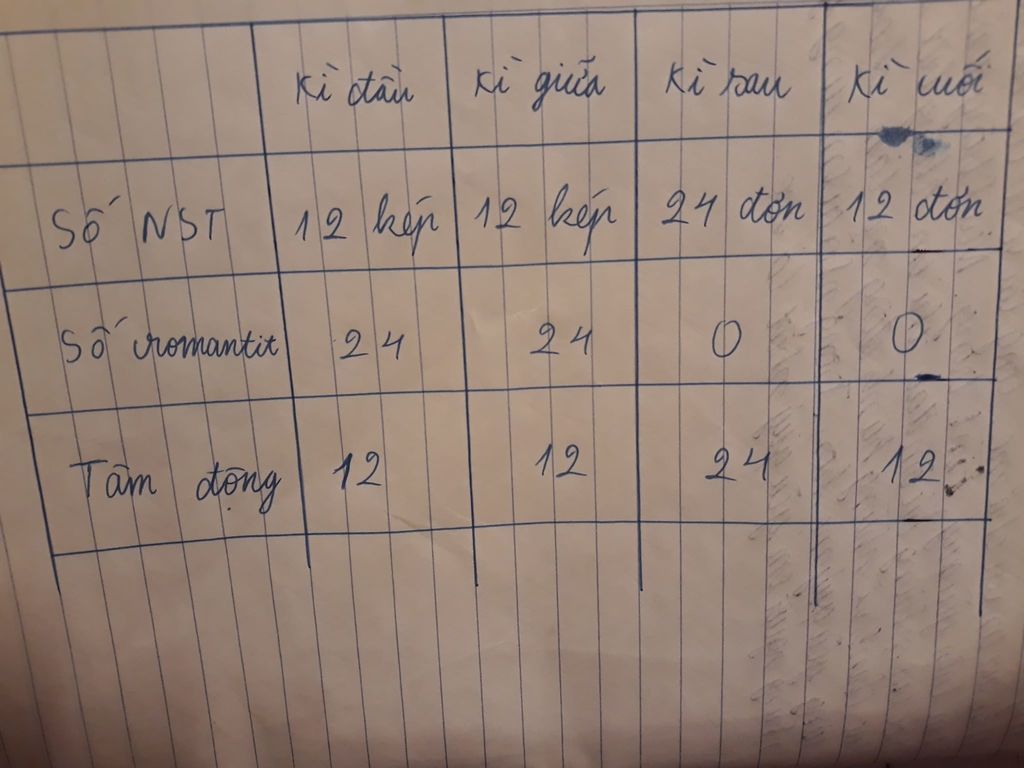 Kì đầu Kì giữa Kì sau Kì cuối
Số NST 12 kép 12 kép 24 đơn 12 đơn
Số cromantit 24 24 0 0
Tâm động 12 12 24 12